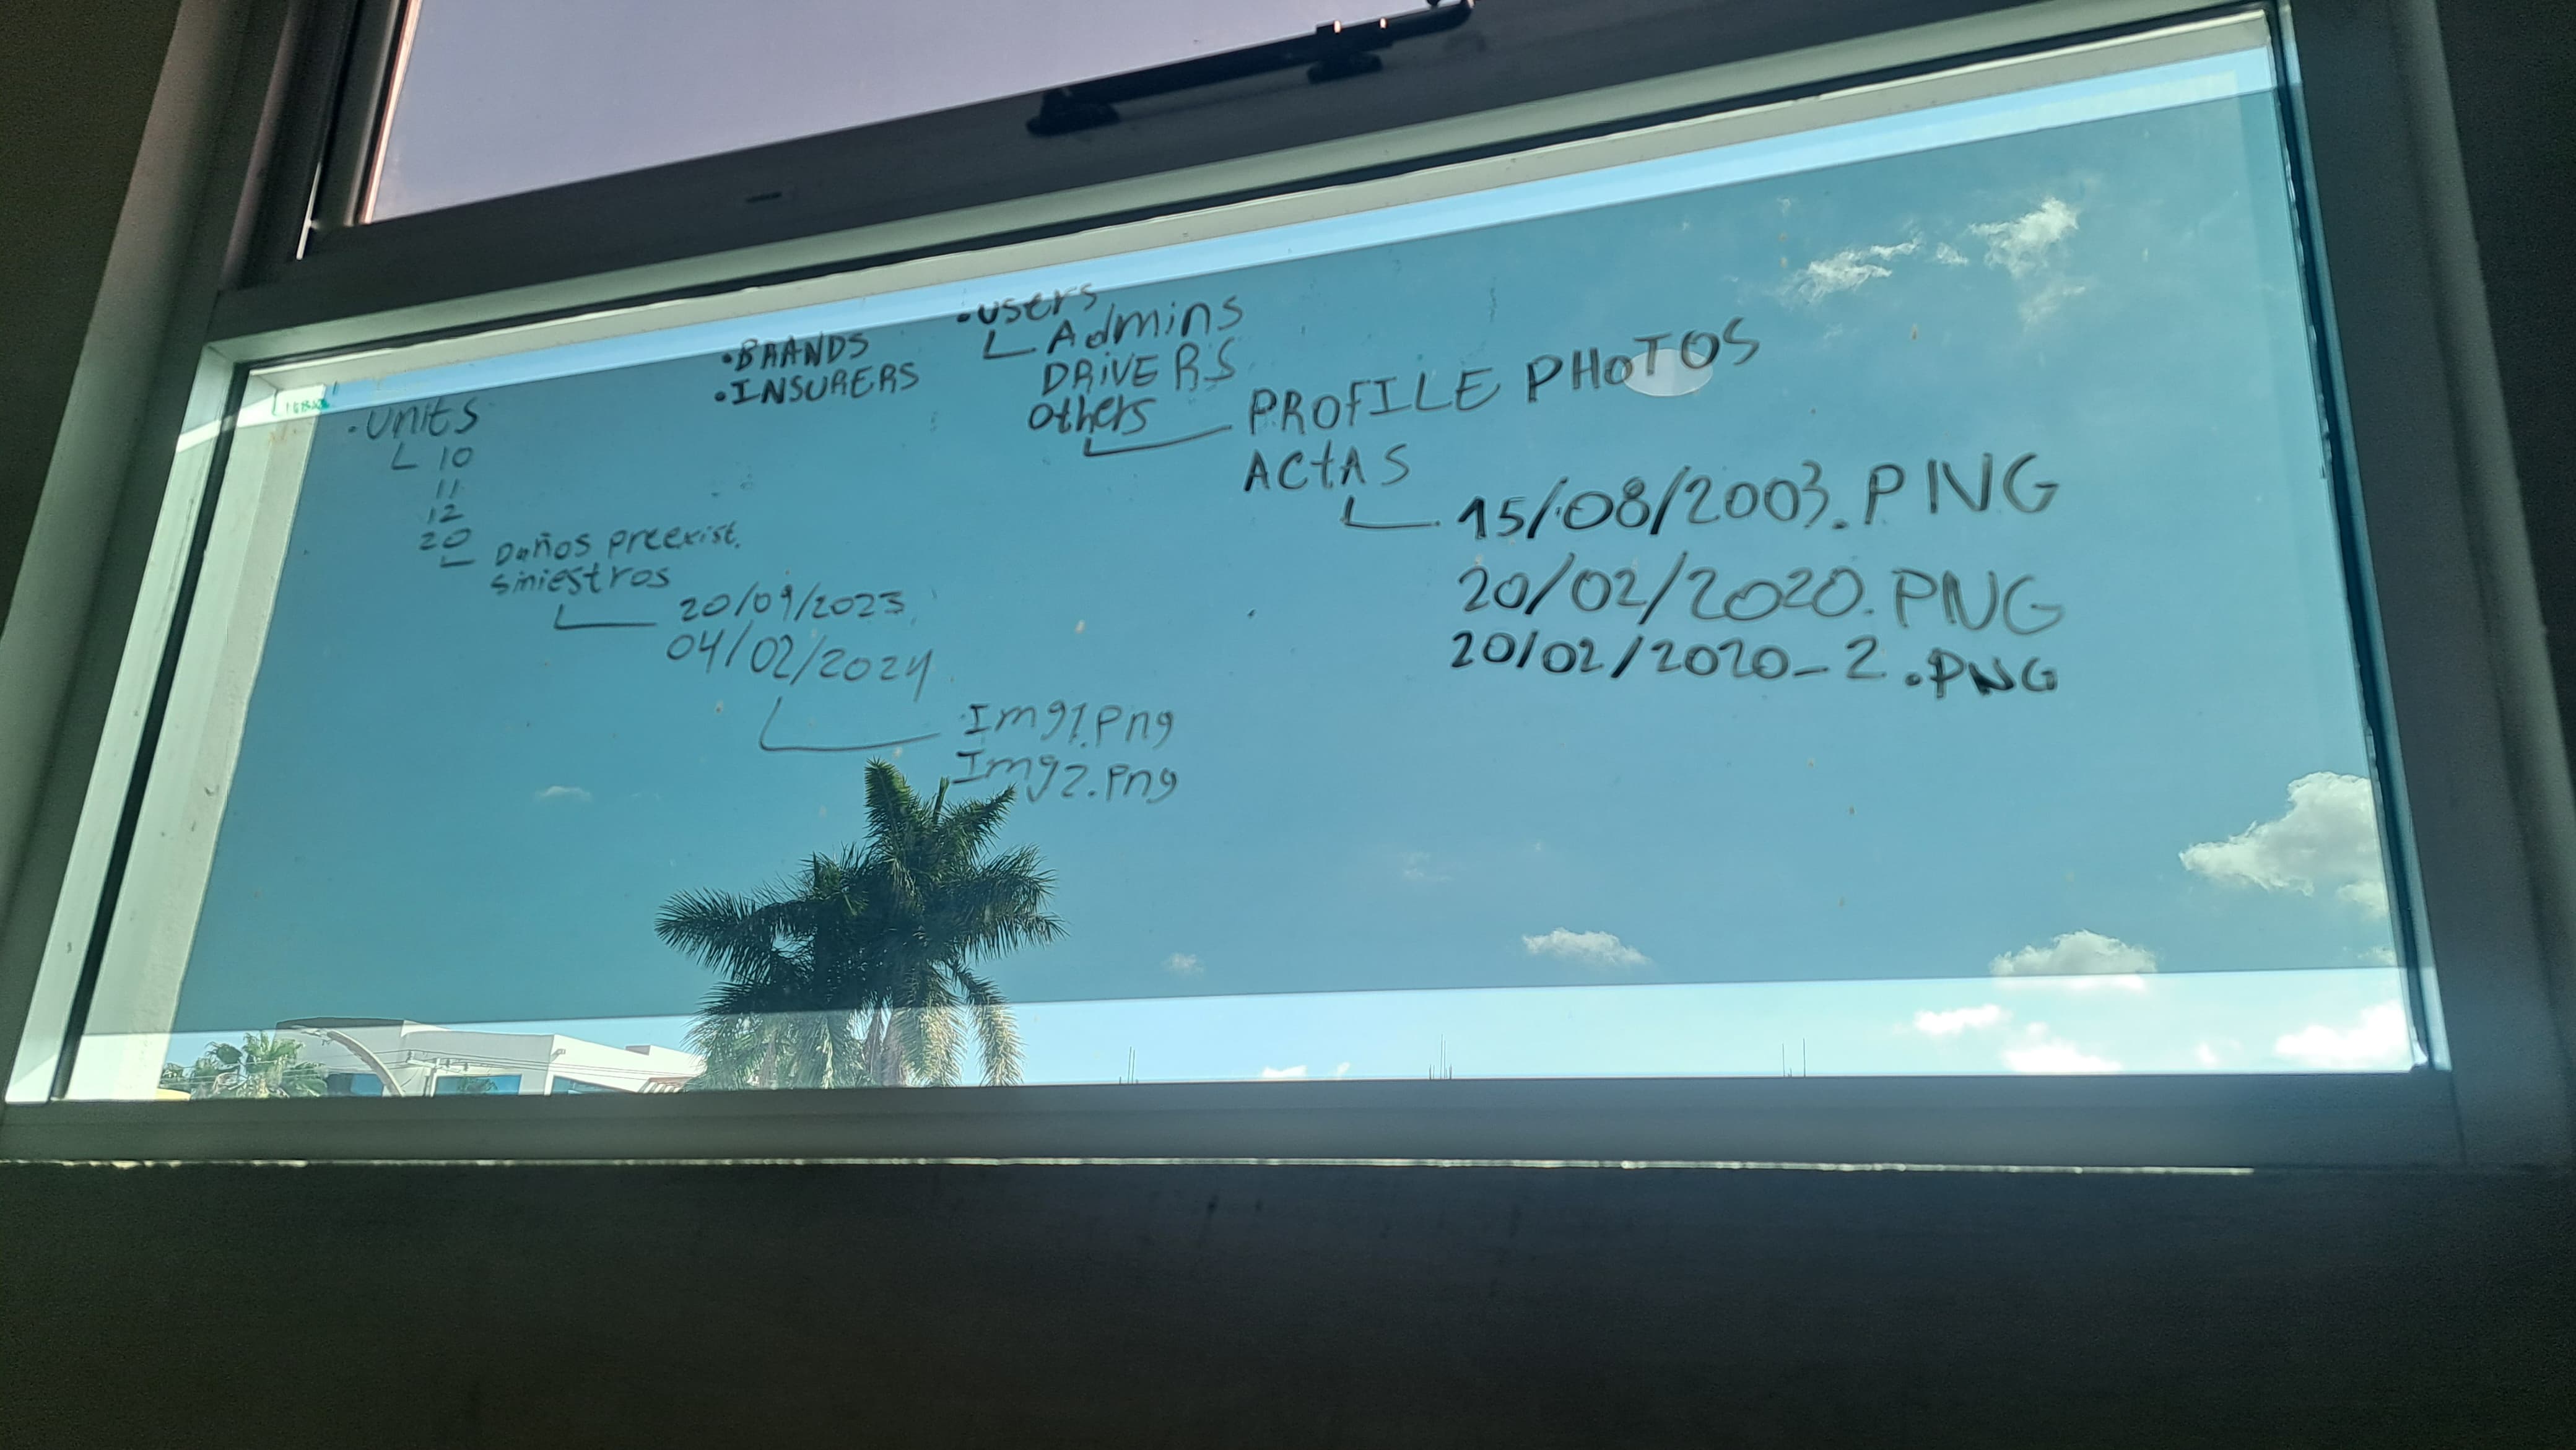 ·Units
10
11
12
20
Daños preexist.
siniestros
20/09/2023
04/02/2024
Img1.png
Img2.png
·BRANDS
·INSURERS
·users
Admins
DRIVERS
others
PROFILE PHOTOS
ACTAS
15/08/2003.PNG
20/02/2020.PNG
20/02/2020_2.PNG